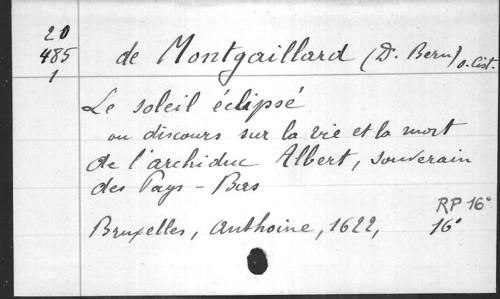 20
485
1
de Montgaillard (D. Bern) o. Cist.
Le soleil éclipsé
ou discours sur la vie et la mort
de l'archiduc Albert, souverain
des Pays-Bas
RP 16°
Bruxelles, Anthoine, 1622, 16°